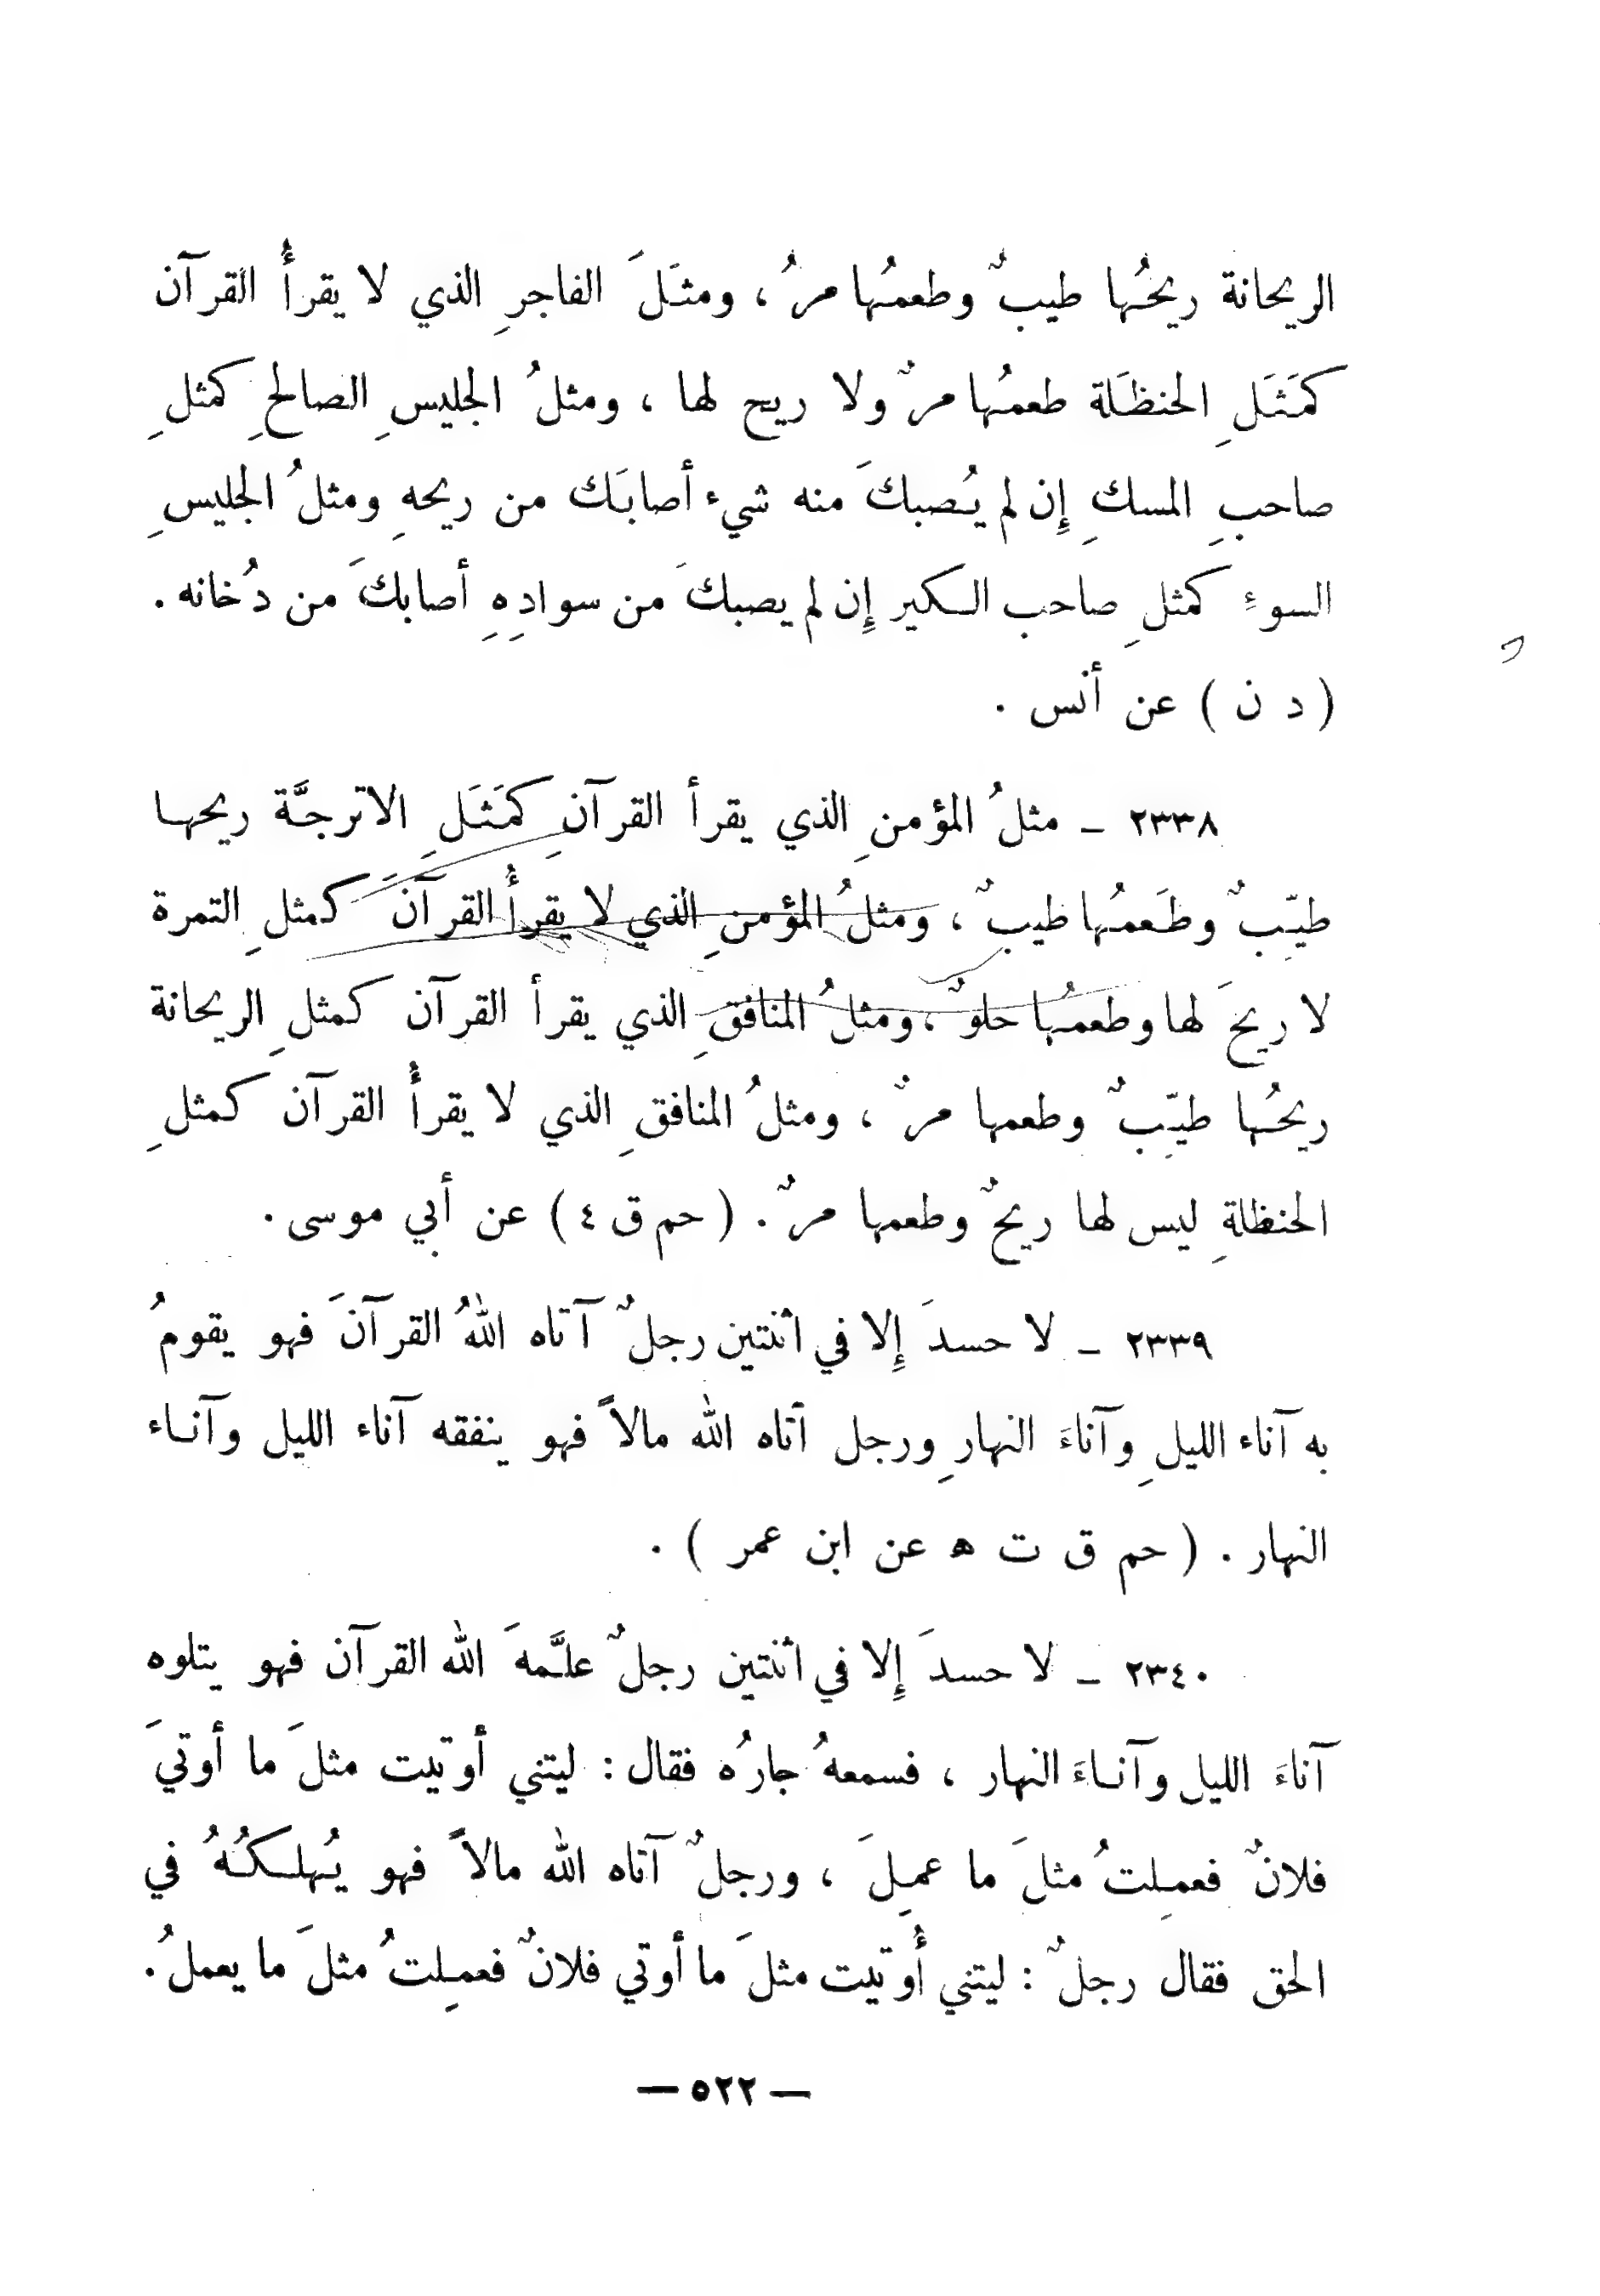 الريحانة ريحُها طيبٌ وطعمُها مرُ ، ومثَلَ الفاجرِ الذي لا يقرأُ القرآن
كمَثَلِ الحنظَلة طعمُها مرٌ ولا ريح لها ، ومثلُ الجليسِ الصالحِ كمثلِ
صاحبِ المسكِ إِن لم يُصبكَ منه شيء أصابَك من ريحهِ ومثلُ الجليسِ
السوءِ كمثلِ صاحب الكير إِن لم يصبكَ من سوادِهِ أصابكَ من دُخانه .
( د ن ) عن أنس .
٢٣٣٨ ــ مثلُ المؤمنِ الذي يقرأ القرآنِ كمَثَلِ الاترجَّة ريحها
طيّبٌ وطَعمُها طيبٌ ، ومثلُ المؤمنِ الذي لا يقرأُ القرآنَ كمثلِ التمرة
لا ريحَ لها وطعمُها حلوٌ ، ومثلُ المنافقِ الذي يقرأ القرآن كمثلِ الريحانة
ريحُها طيّبٌ وطعمها مرٌ ، ومثلُ المنافقِ الذي لا يقرأُ القرآن كمثلِ
الحنظلةِ ليس لها ريحٌ وطعمها مرٌ . ( حم ق ٤ ) عن أبي موسى .
٢٣٣٩ ــ لا حسدَ إِلا في اثنتين رجلٌ آتاه اللهُ القرآنَ فهو يقومُ
به آناء الليلِ وآناءَ النهارِ ورجل آتاه الله مالاً فهو ينفقه آناء الليل وآناء
النهار . ( حم ق ت ه عن ابن عمر ) .
٢٣٤٠ ــ لا حسدَ إِلا في اثنتين رجلٌ علَّمهَ الله القرآن فهو يتلوه
آناءَ الليل وآناءَ النهار ، فسمعهُ جارُه فقال : ليتني أوتيت مثلَ ما أوتيَ
فلانٌ فعمِلتُ مثلَ ما عمِلَ ، ورجلٌ آتاه الله مالاً فهو يُهلكُهُ في
الحق فقال رجلٌ : ليتني أُوتيت مثلَ ما أوتي فلانٌ فعمِلتُ مثلَ ما يعملُ .
— ٥٢٢ —